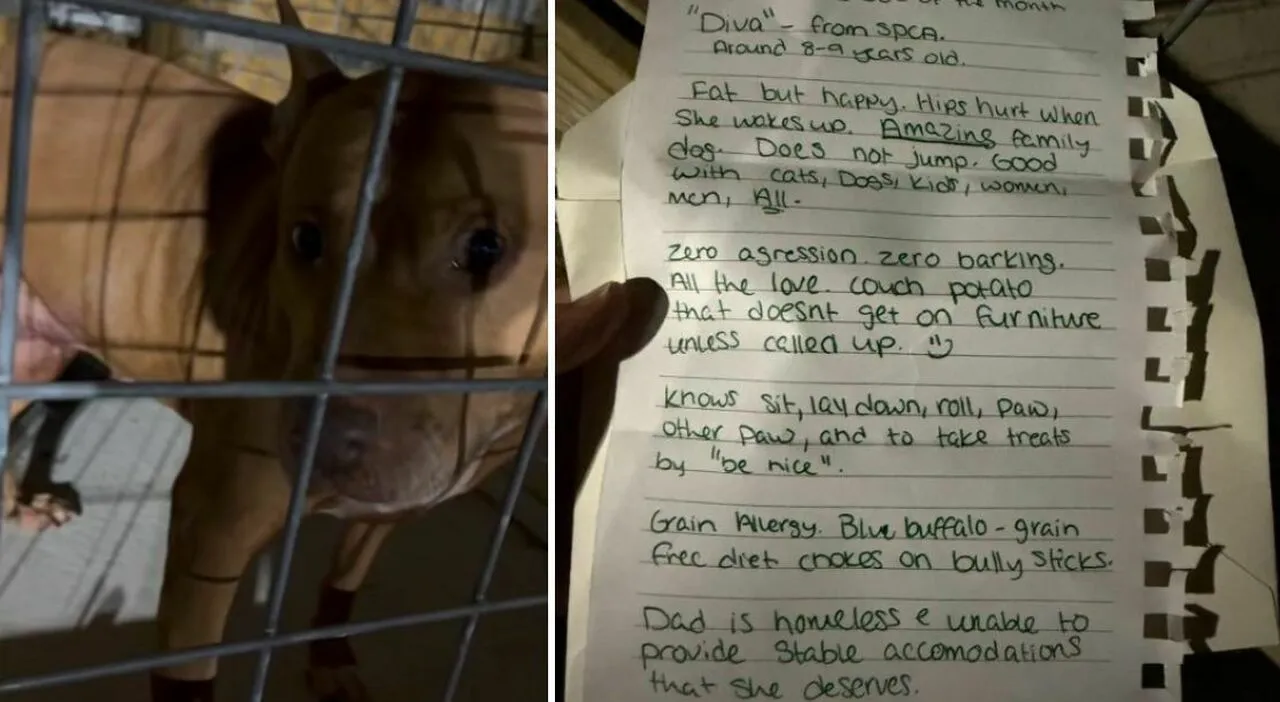 of the month
"Diva" - from SPCA.
Around 8-9 years old.
Fat but happy. Hips hurt when
she wakes up. Amazing family
dog. Does not jump. Good
with cats, Dogs, kids, women,
men, All.
Zero agression. Zero barking.
All the love. couch potato
that doesnt get on furniture
unless called up.
Knows sit, lay down, roll, paw,
other paw, and to take treats
by "be nice".
Grain Allergy. Blue buffalo - grain
free diet chokes on bully sticks.
Dad is homeless & unable to
provide stable accomodations
that she deserves.